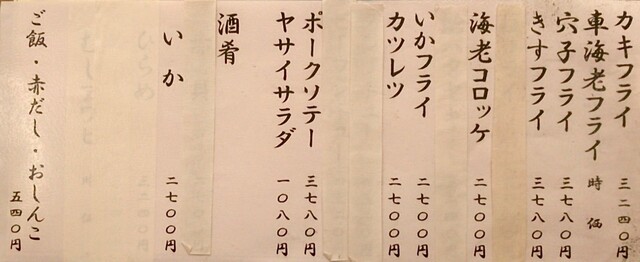 カキフライ 三二四〇円
車海老フライ 時価
穴子フライ 三七八〇円
きすフライ 三七八〇円
海老コロッケ 二七〇〇円
いかフライ 二七〇〇円
カツレツ 二七〇〇円
ポークソテー 三七八〇円
ヤサイサラダ 一〇八〇円
酒肴
いか 二七〇〇円
ご飯・赤だし・おしんこ 五四〇円